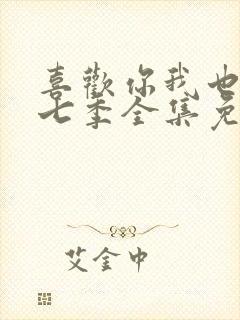 喜歡你我也
七季全集免
艾金中